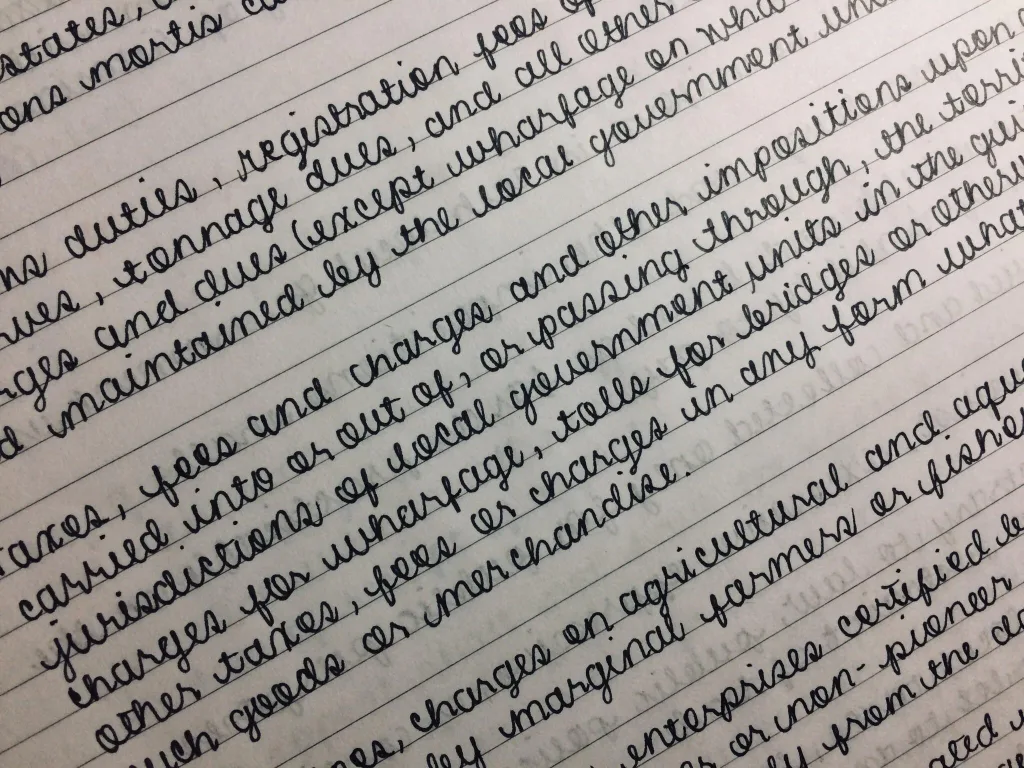 states,
ons mortis
ms duties, registration fees of
dues, tonnage dues, and all other
rges and dues (except wharfage on wha
d maintained by the local government un
Taxes, fees and charges and other impositions upon
carried into or out of, or passing through, the terri
jurisdictions of local government units in the gui
charges for wharfage, tolls for bridges or otherw
other taxes, fees or charges in any form what
uch goods or merchandise.
es, charges on agricultural and aqu
by marginal farmers or fishe
enterprises certified b
or non-pioneer
ly from the da
ated